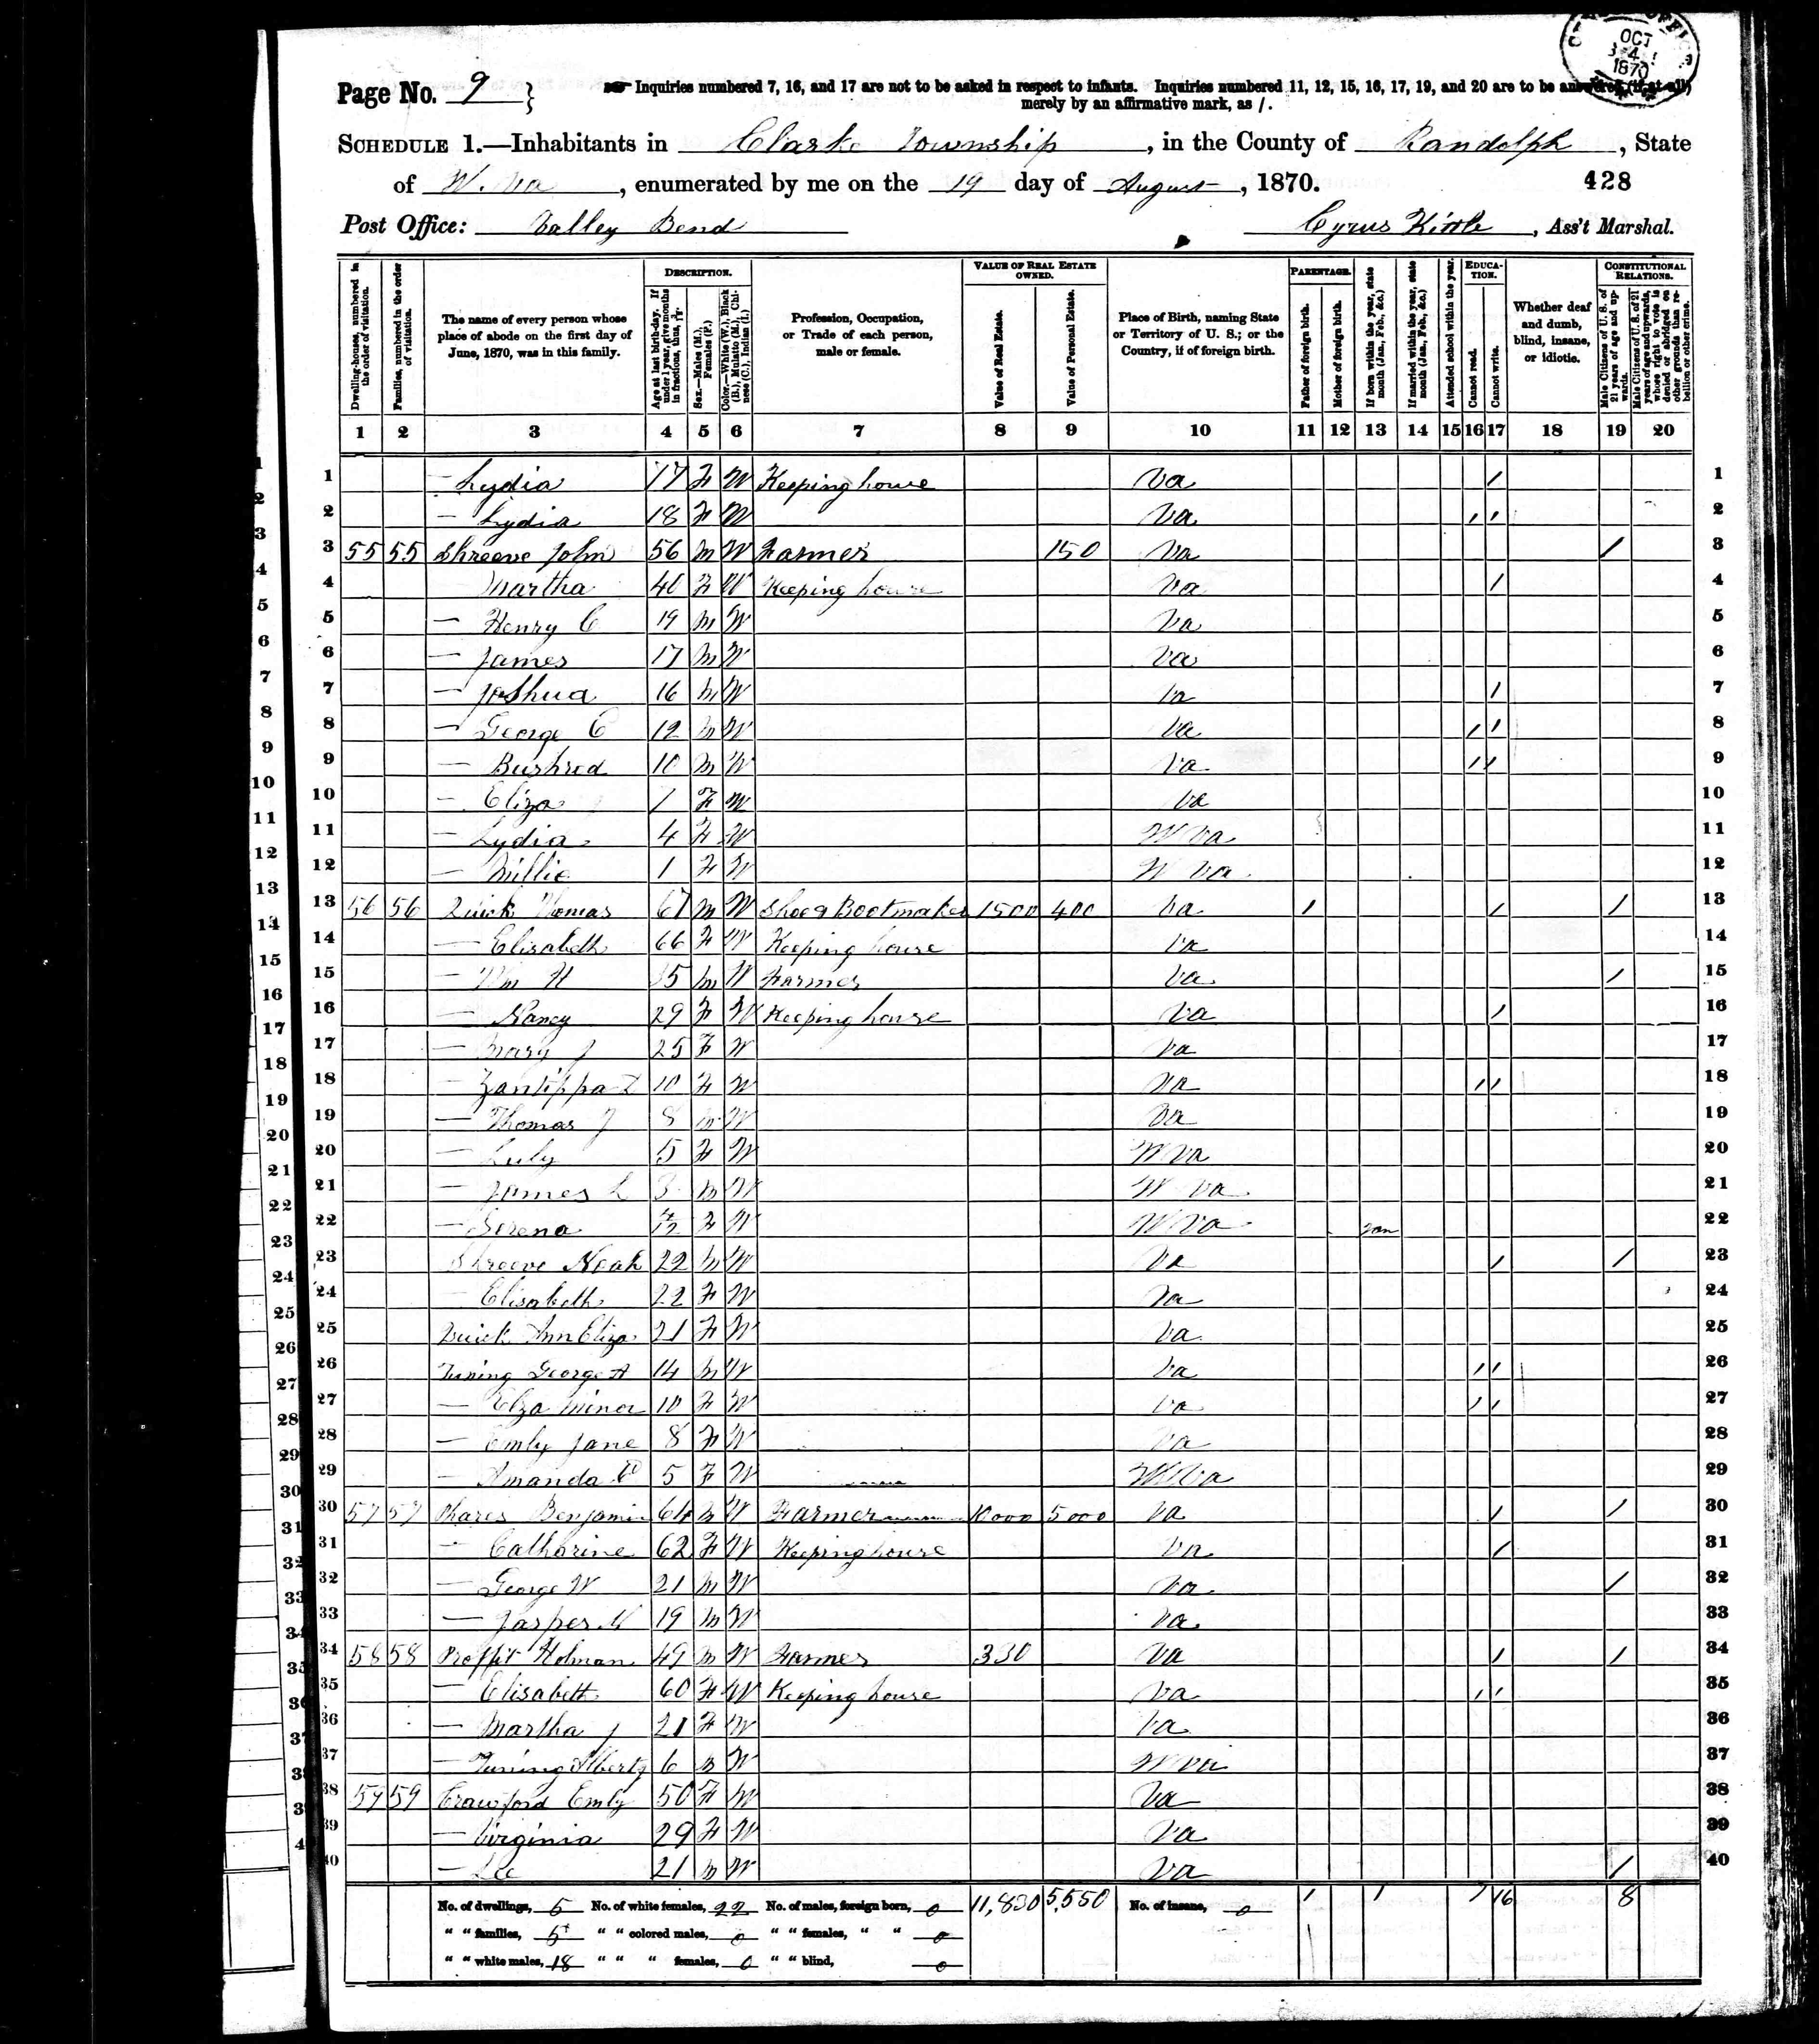 OCT 4 1870
Page No. 9 } Inquiries numbered 7, 16, and 17 are not to be asked in respect to infants. Inquiries numbered 11, 12, 15, 16, 17, 19, and 20 are to be answered (if at all)
merely by an affirmative mark, as /.
SCHEDULE 1.—Inhabitants in Clarke Township, in the County of Randolph, State
of W. Va, enumerated by me on the 19 day of August, 1870. 428
Post Office: Valley Bend Cyrus Kittle, Ass't Marshal.
Dwelling-houses, numbered in the order of visitation.
Families, numbered in the order of visitation.
The name of every person whose place of abode on the first day of June, 1870, was in this family.
DESCRIPTION.
Age at last birth-day. If under 1 year, give months in fractions, thus, 3/12.
Sex.—Males (M.), Females (F.)
Color.—White (W.), Black (B.), Mulatto (M.), Chinese (C.), Indian (I.)
Profession, Occupation, or Trade of each person, male or female.
VALUE OF REAL ESTATE OWNED.
Value of Real Estate.
Value of Personal Estate.
Place of Birth, naming State or Territory of U. S.; or the Country, if of foreign birth.
PARENTAGE.
Father of foreign birth.
Mother of foreign birth.
If born within the year, state month (Jan., Feb., &c.)
If married within the year, state month (Jan., Feb., &c.)
Attended school within the year.
EDUCATION.
Cannot read.
Cannot write.
Whether deaf and dumb, blind, insane, or idiotic.
CONSTITUTIONAL RELATIONS.
Male Citizens of U. S. of 21 years of age and upwards.
Male Citizens of U. S. of 21 years of age and upwards, whose right to vote is denied or abridged on other grounds than rebellion or other crime.
1 2 3 4 5 6 7 8 9 10 11 12 13 14 15 16 17 18 19 20
1 — Lydia 77 F W Keeping house Va / 1
2 — Lydia 18 F W Va / / 2
3 55 55 Shreeve John 56 M W Farmer 150 Va / 3
4 Martha 40 F W Keeping house Va / 4
5 — Henry C 19 M W Va 5
6 — James 17 M W Va 6
7 — Joshua 16 M W Va / 7
8 — George C 12 M W Va / / 8
9 — Bushrod 10 M W Va / / 9
10 — Eliza 7 F W Va 10
11 — Lydia 4 F W W Va 11
12 — Millie 1 F W W Va 12
13 56 56 Quick Thomas 67 M W Shoe & Bootmaker 1500 400 Va / / / 13
14 — Elisabeth 66 F W Keeping house Va 14
15 — Wm H 35 M W Farmer Va / 15
16 — Nancy 29 F W Keeping house Va / 16
17 — Mary J 25 F W Va 17
18 — Zantippa 10 F W Va / / 18
19 — Thomas J 8 M W Va 19
20 — Luly 5 F W W Va 20
21 — James L 3 M W W Va 21
22 — Serena 4/12 F W W Va Jan 22
23 Shreeve Noah 22 M W Va / / 23
24 — Elisabeth 22 F W Va 24
25 Quick Ann Eliza 21 F W Va 25
26 Tuning George A 14 M W Va / / 26
27 — Elza Minor 10 F W Va / / 27
28 — Emly Jane 8 F W Va 28
29 — Amanda C 5 F W W Va 29
30 57 57 Phares Benjamin 64 M W Farmer 10000 5000 Va / / 30
31 — Catharine 62 F W Keeping house Va / 31
32 — George W 21 M W Va / 32
33 — Jasper N 19 M W Va 33
34 58 58 Proffit Holman 49 M W Farmer 330 Va / / 34
35 — Elisabeth 60 F W Keeping house Va / / 35
36 — Martha J 21 F W Va 36
37 — Tuning Albert 6 M W W Va 37
38 59 59 Crawford Emly 50 F W Va 38
39 — Virginia 29 F W Va 39
40 — Lee 21 M W Va / 40
No. of dwellings, 5 No. of white females, 22 No. of males, foreign born, 0 11,830 5,550 No. of insane, 0 1 1 7 16 8
" " families, 5 " " colored males, 0 " " females, " " 0
" " white males, 18 " " " females, 0 " " blind, 0